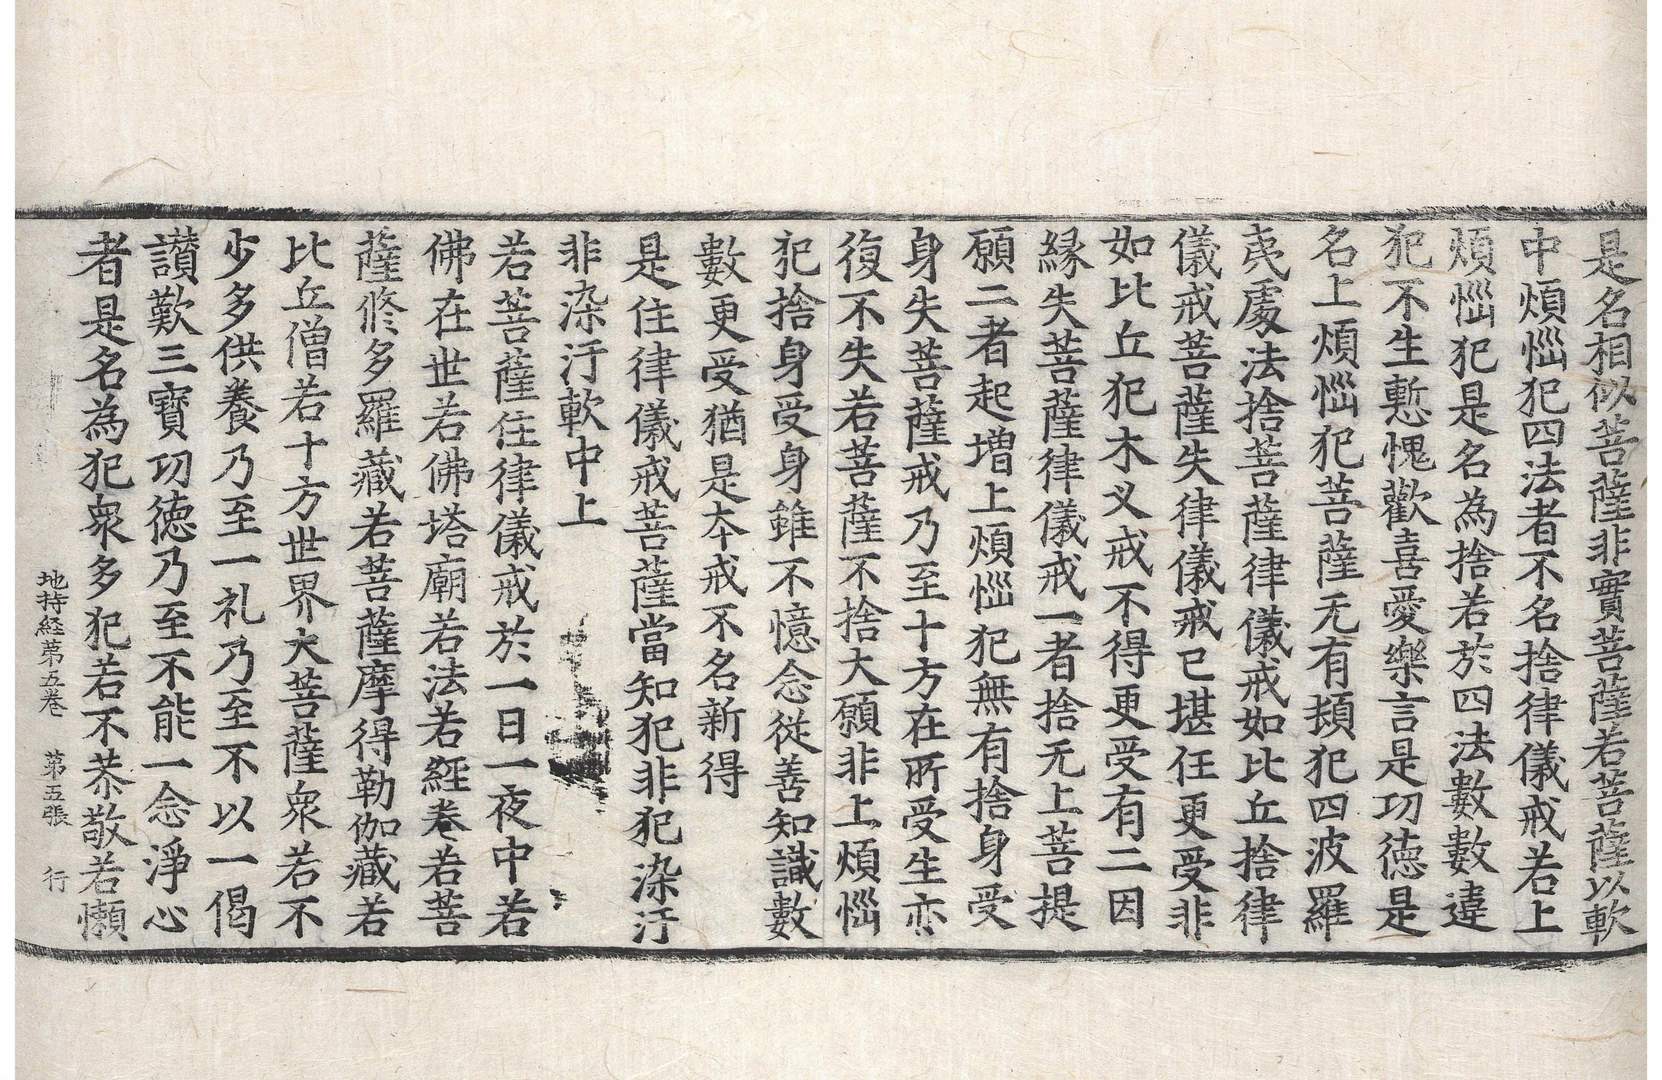 是名相似菩薩非實菩薩若菩薩以軟
中煩惱犯四法者不名捨律儀戒若上
煩惱犯是名為捨若於四法數數違
犯不生慙愧歡喜愛樂言是功德是
名上煩惱犯菩薩无有頻犯四波羅
夷處法捨菩薩律儀戒如比丘捨律
儀戒菩薩失律儀戒已堪任更受非
如比丘犯木叉戒不得更受有二因
緣失菩薩律儀戒一者捨无上菩提
願二者起增上煩惱犯無有捨身受
身失菩薩戒乃至十方在所受生亦
復不失若菩薩不捨大願非上煩惱
犯捨身受身雖不憶念從善知識數
數更受猶是本戒不名新得
是住律儀戒菩薩當知犯非犯染汙
非染汙軟中上
若菩薩住律儀戒於一日一夜中若
佛在世若佛塔廟若法若經卷若菩
薩修多羅藏若菩薩摩得勒伽藏若
比丘僧若十方世界大菩薩衆若不
少多供養乃至一礼乃至不以一偈
讃歎三寶功德乃至不能一念淨心
者是名為犯衆多犯若不恭敬若懶
地持経第五巻 第五張 行